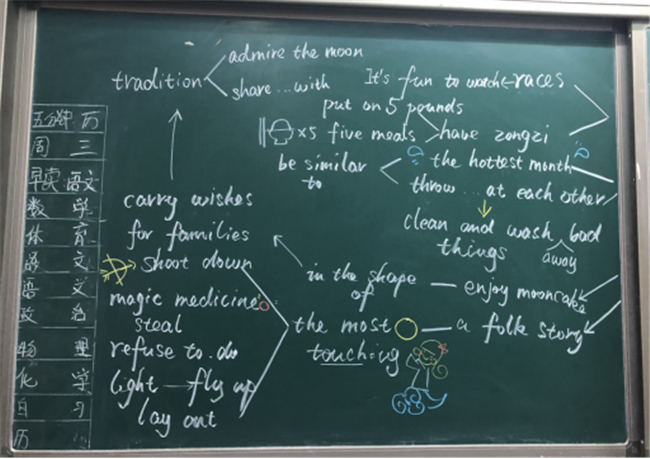 admire the moon
tradition
share...with
It's fun to watch races
put on 5 pounds
×5 five meals have zongzi
be similar to
the hottest month
throw ... at each other
clean and wash bad things
away
carry wishes
for families
shoot down
in the shape of
enjoy mooncake
magic medicine
steal
the most
touching
a folk story
refuse to do
light fly up
lay out
五分钟 历
周 三
早读 语文
数 学
体 育
语 文
政 治
物 理
化 学
自 习
历